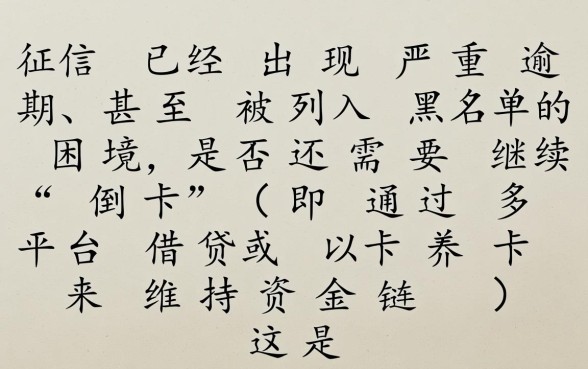 征信 已经 出现 严重 逾
期、甚至 被列入 黑名单的
困境，是否还需要 继续
“倒卡”（即 通过 多
平台 借贷或 以卡养卡
来 维持资金链 ）
这是